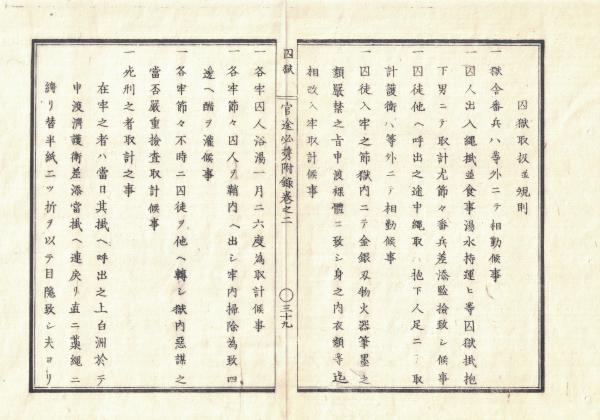 囚獄取扱並規則
一獄令番兵ハ等外ニテ相勤候事
一囚人出入縄掛並食事湯水持運ヒ等囚獄掛抱
下男ニテ取計尤節々番兵差添監撿致シ候事
一囚徒他ヘ呼出之途中縄取ハ抱下人足ニテ取
計護衛ハ等外ニテ相勤候事
一囚徒入牢之節獄内ニテ金銀刃物火器筆墨之
類嚴禁之旨申渡裸體ニ致シ身之内衣類等迄
相改入牢取計候事
囚獄
官途必携附録巻之二
〇三十九
一各牢囚人浴湯一月ニ六度為取計候事
一各牢節々囚人ヲ鞘内ヘ出シ牢内掃除為致四
邊ヘ醋ヲ灌候事
一各牢節々不時ニ囚徒ヲ他ヘ轉シ獄内惡謀之
當否嚴重撿査取計候事
一死刑之者取計之事
在牢之者ハ當日其掛ヘ呼出之上白洲於テ
申渡濟護衛差添當掛ヘ連戻リ直ニ藁縄ニ
縛リ替半紙二ッ折ヲ以テ目隠致シ夫ヨリ